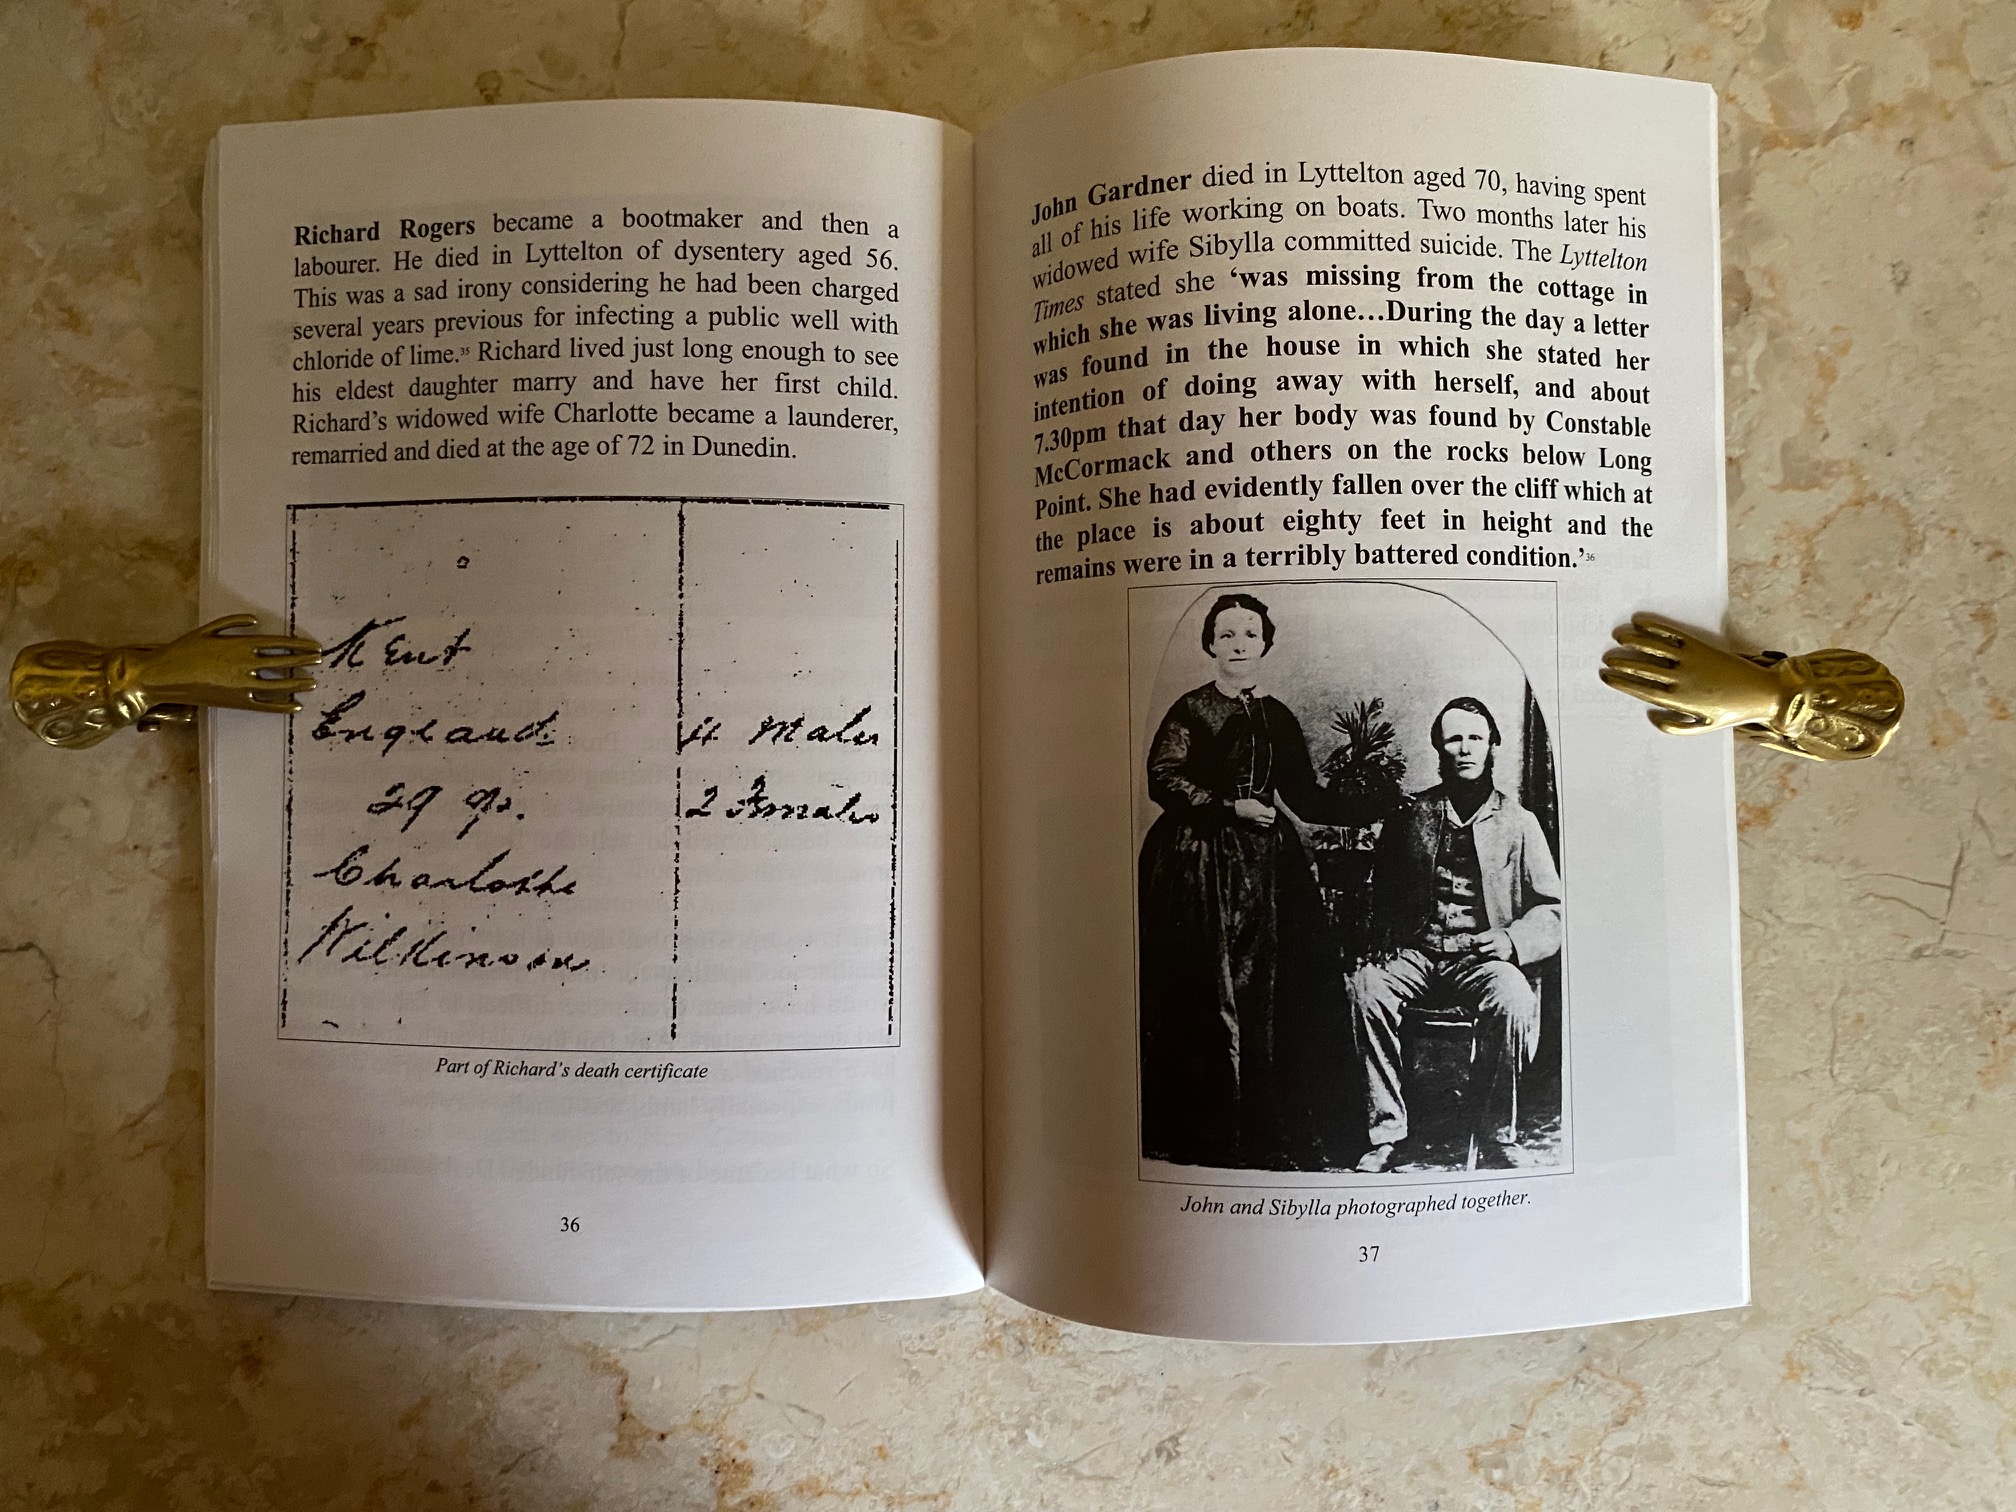 Richard Rogers became a bootmaker and then a
labourer. He died in Lyttelton of dysentery aged 56.
This was a sad irony considering he had been charged
several years previous for infecting a public well with
chloride of lime.³⁵ Richard lived just long enough to see
his eldest daughter marry and have her first child.
Richard's widowed wife Charlotte became a launderer,
remarried and died at the age of 72 in Dunedin.
Kent
England
4 Males
29 yr.
2 Females
Charlotte
Wilkinson
Part of Richard's death certificate
36
John Gardner died in Lyttelton aged 70, having spent
all of his life working on boats. Two months later his
widowed wife Sibylla committed suicide. The Lyttelton
Times stated she ‘was missing from the cottage in
which she was living alone…During the day a letter
was found in the house in which she stated her
intention of doing away with herself, and about
7.30pm that day her body was found by Constable
McCormack and others on the rocks below Long
Point. She had evidently fallen over the cliff which at
the place is about eighty feet in height and the
remains were in a terribly battered condition.’³⁶
John and Sibylla photographed together.
37